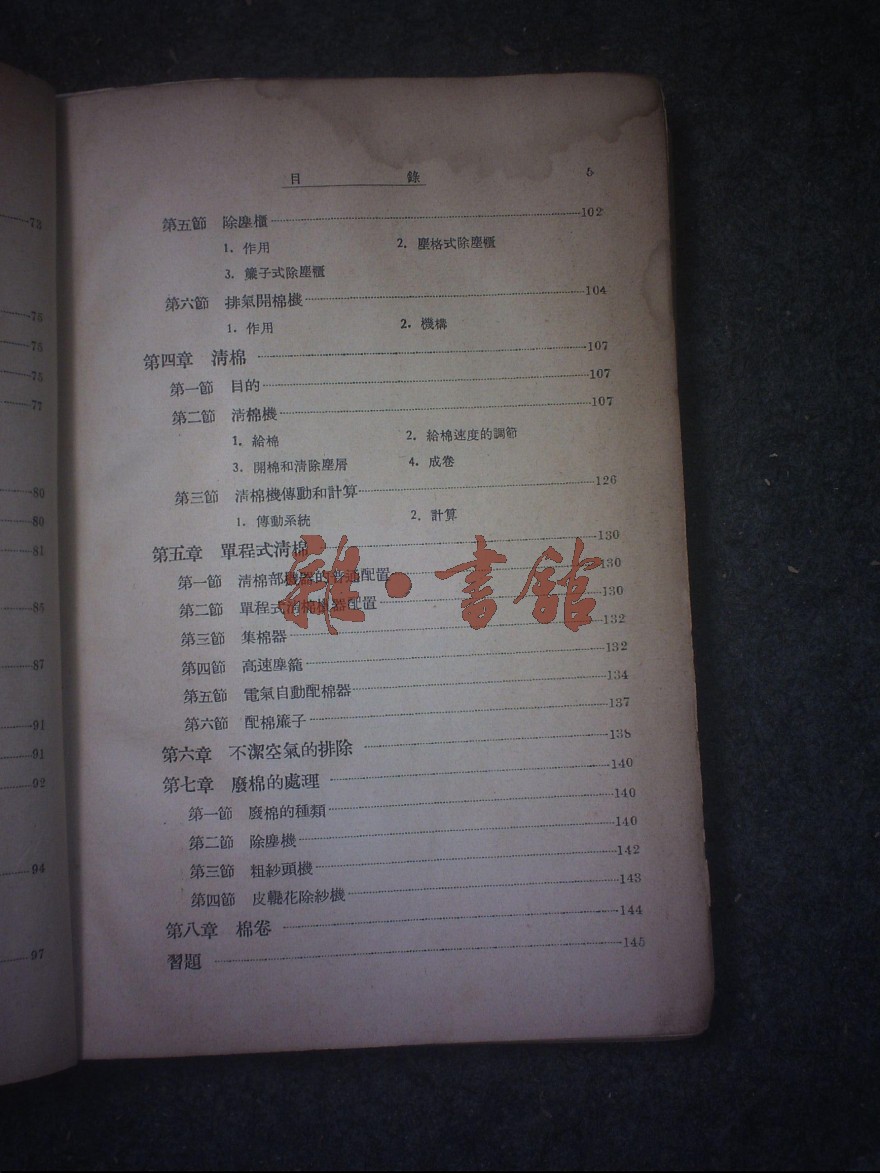 目 錄 5
第五節 除塵櫃 102
1. 作用 2. 塵格式除塵櫃
3. 簾子式除塵櫃
第六節 排氣開棉機 104
1. 作用 2. 機構
第四章 淸棉 107
第一節 目的 107
第二節 淸棉機 107
1. 給棉 2. 給棉速度的調節
3. 開棉和清除塵屑 4. 成卷
第三節 淸棉機傳動和計算 126
1. 傳動系統 2. 計算
第五章 單程式淸棉 130
第一節 淸棉部機器的普通配置 130
第二節 單程式淸棉機器配置 130
第三節 集棉器 132
第四節 高速塵籠 132
第五節 電氣自動配棉器 134
第六節 配棉簾子 137
第六章 不潔空氣的排除 138
第七章 廢棉的處理 140
第一節 廢棉的種類 140
第二節 除塵機 140
第三節 粗紗頭機 142
第四節 皮輥花除紗機 143
第八章 棉卷 144
習題 145
雜·書館
73
76
76
75
77
80
80
81
85
87
91
91
92
94
97